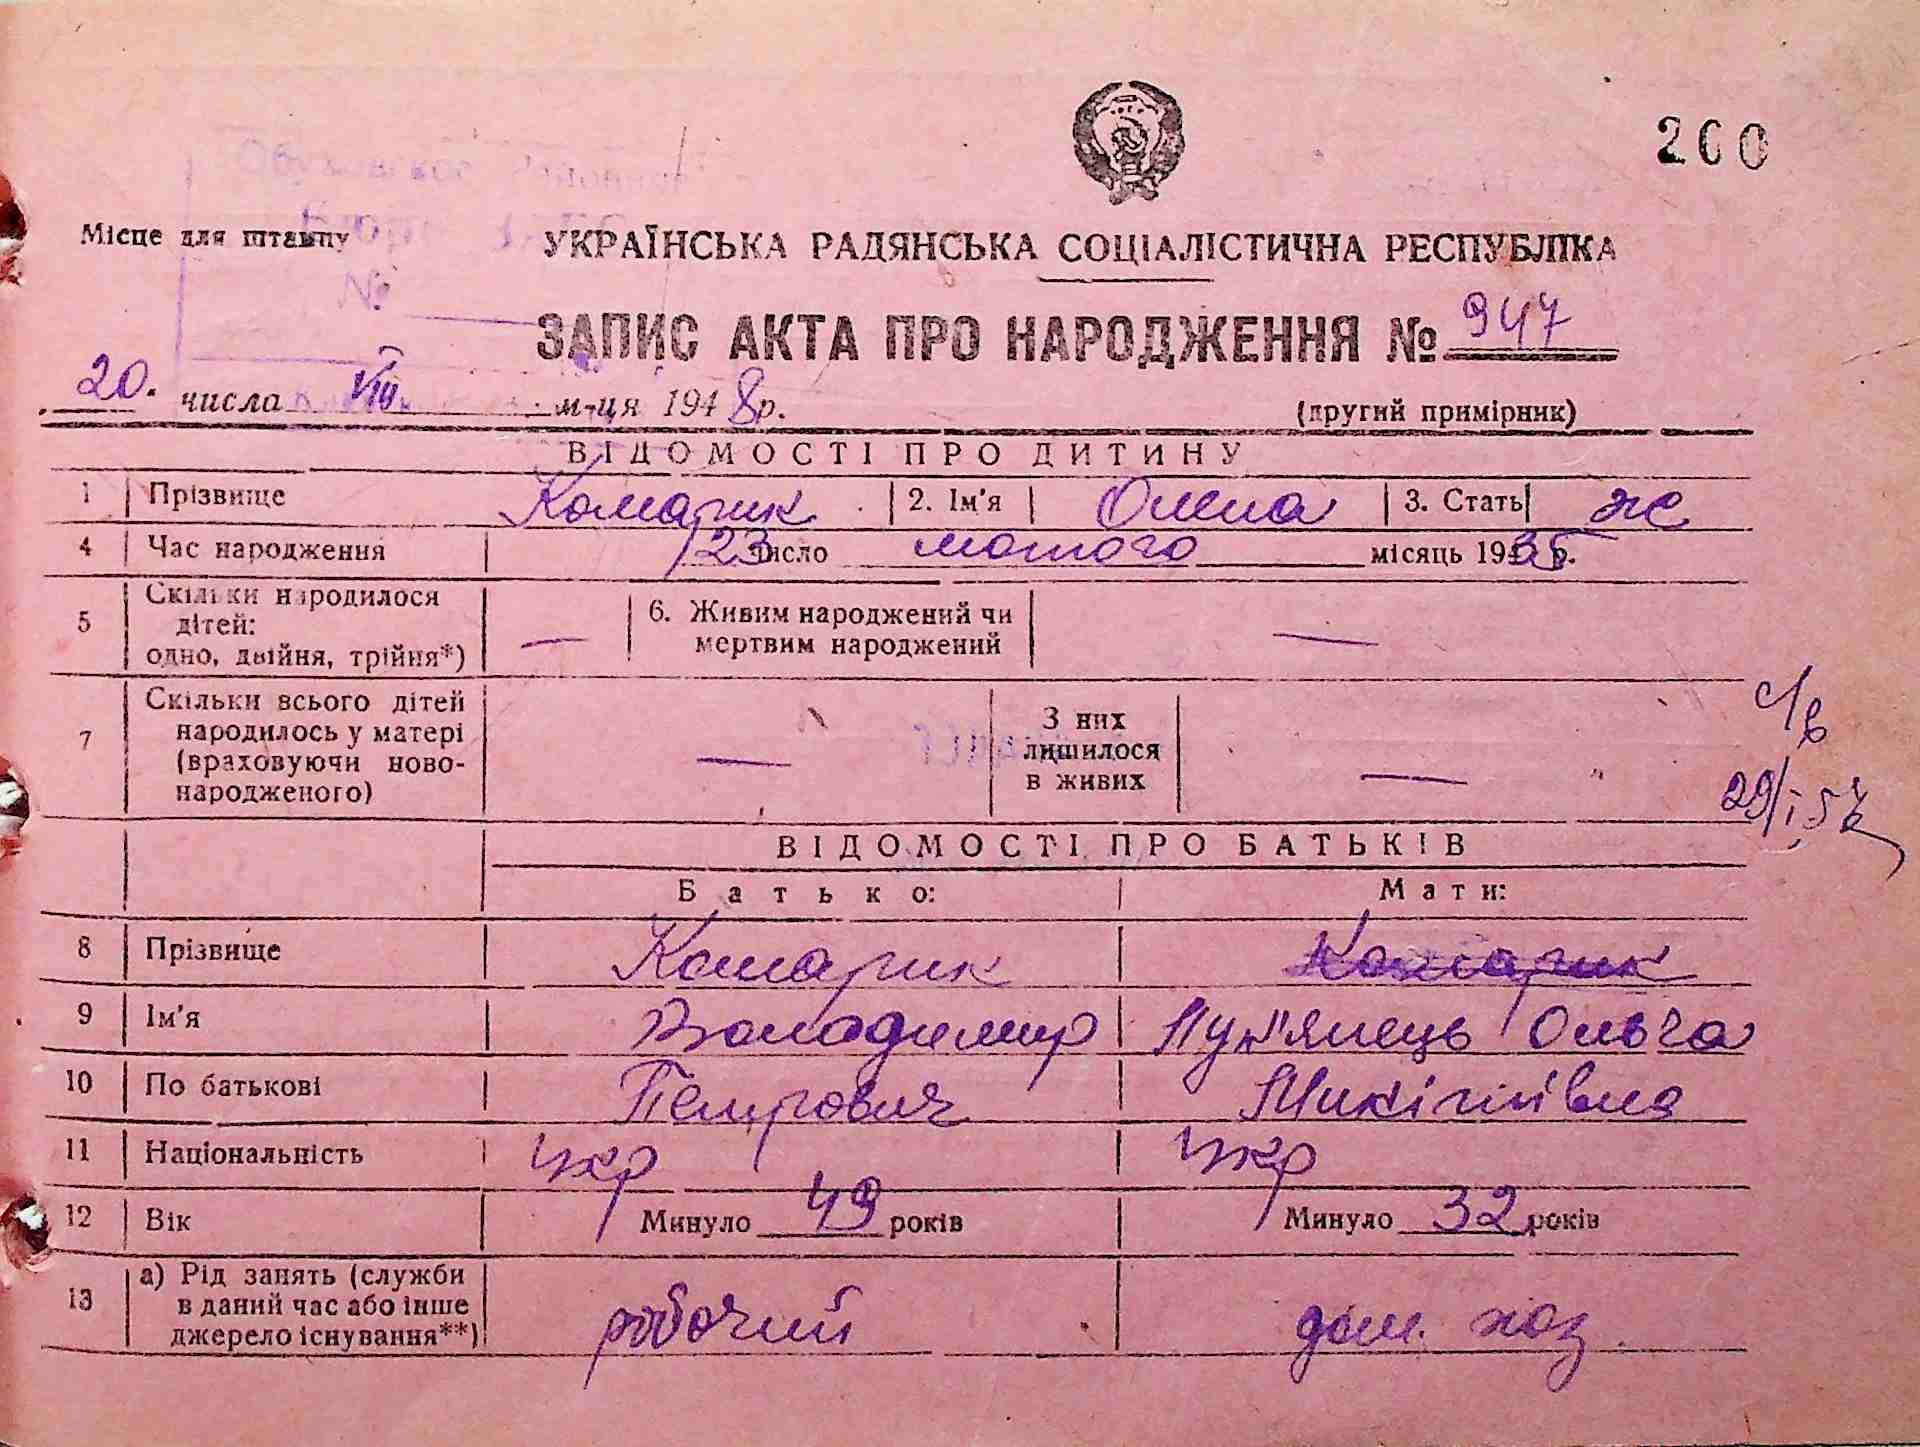 260
Місце для штампу
УКРАЇНСЬКА РАДЯНСЬКА СОЦІАЛІСТИЧНА РЕСПУБЛІКА
№
ЗАПИС АКТА ПРО НАРОДЖЕННЯ № 947
20. числа VIII м-ця 1948 р.
(другий примірник)
ВІДОМОСТІ ПРО ДИТИНУ
1 Прізвище Комарик 2. Ім'я Олена 3. Стать ж
4 Час народження 23 число лютого місяць 1935 р.
5 Скільки народилося дітей: одно, двійня, трійня*) — 6. Живим народжений чи мертвим народжений —
7 Скільки всього дітей народилось у матері (враховуючи новонародженого) — З них лишилося в живих —
с/в
29/I 57
ВІДОМОСТІ ПРО БАТЬКІВ
Батько: Мати:
8 Прізвище Комарик Комарик
9 Ім'я Володимир Лук'янець Ольга
10 По батькові Петрович Микітівна
11 Національність Укр Укр
12 Вік Минуло 49 років Минуло 32 років
13 а) Рід занять (служби в даний час або інше джерело існування**) робочий дом. хоз.